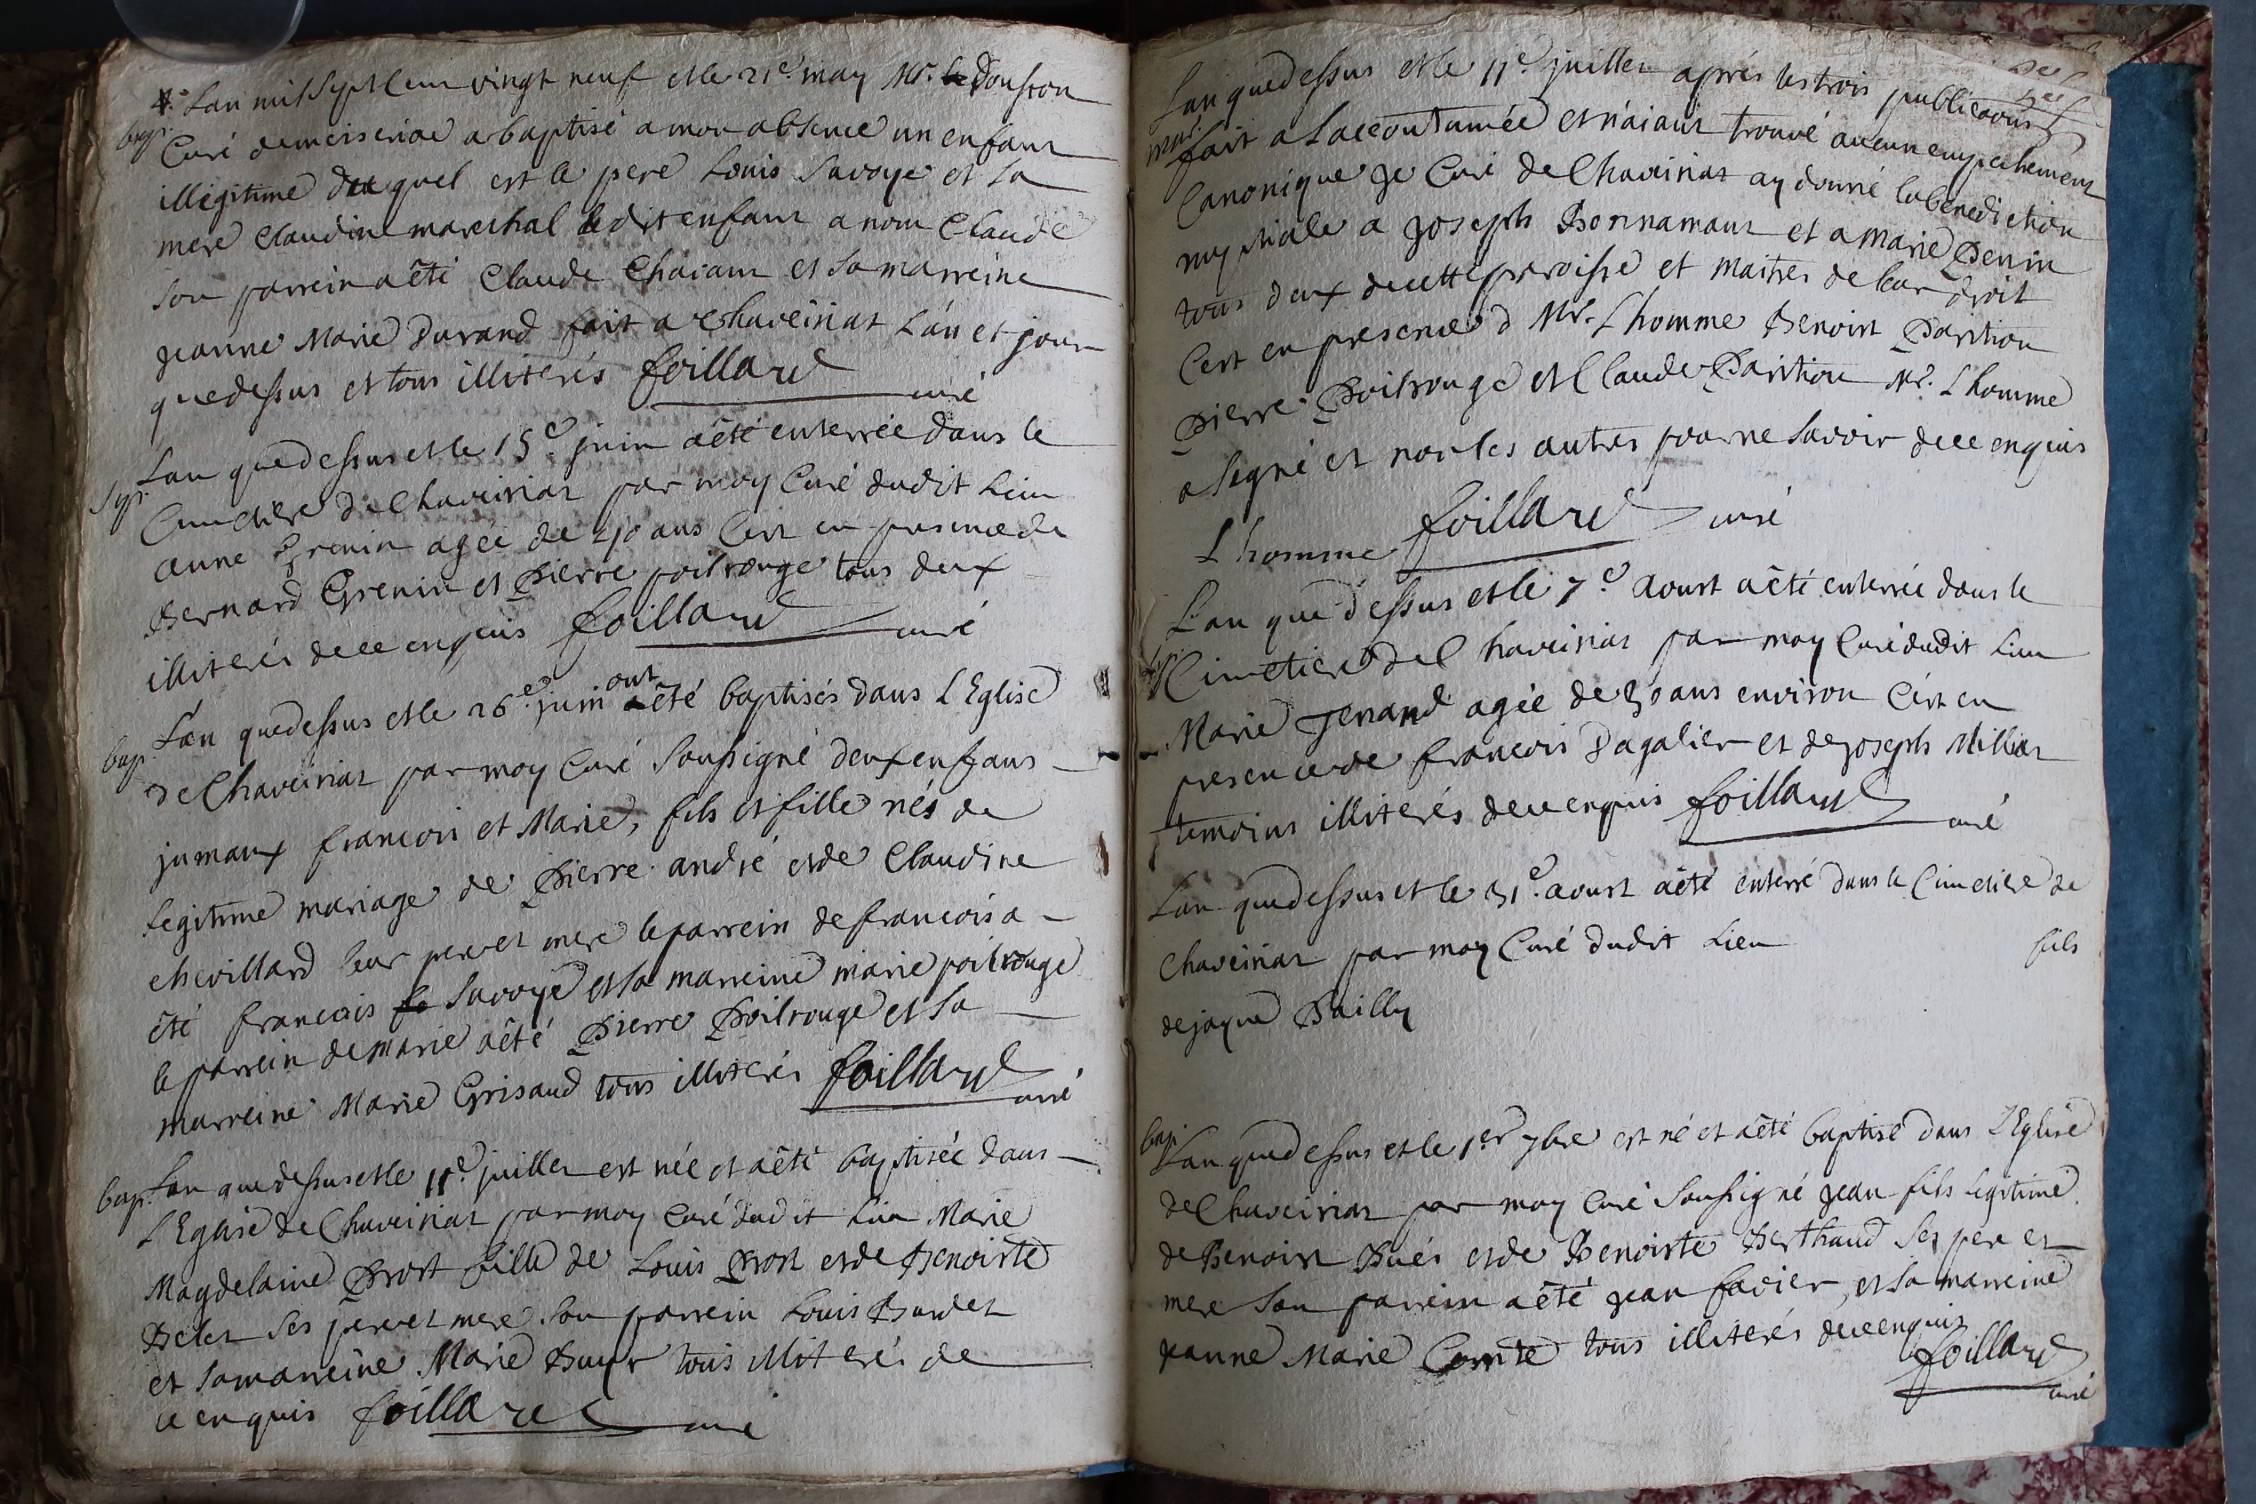 bap. Lan mil sept Cent vingt neuf et le 21e. may Mr. Douston
Curé de meiseriae a baptisé a mon absence un enfant
illégitime duquel est le pere Louis Savoye et La
mere Claudine mareschal ledit enfant a nom Claude
son parrein a êté Claude Chaiaux et Sa marreine
jeanne Marie Durand fait a Chaveiriat L'an et jour
que dessus et tous illiterés foillard curé
Sep. Lan que dessus et le 15e. juin a êté enterrée dans le
Cimetiere de Chaveiriat par moy Curé dudit Lieu
anne Grenin agée de 40 ans C'ert en presence de
Bernard Grenin et Pierre poilrouge tous deux
illiterés de ce enquis foillard curé
bap. L'an que dessus et le 26e. juin ont êté baptisés dans L'Eglise
de Chaveiriat par moy Curé Soussigné deux enfans
jumaux francois et Marie, fils et fille nés de
Legitime mariage de Pierre andré et de Claudine
chevillard leur pere et mere le parrein de francois a
êté francois Savoye et la marreine marie poilrouge
le parrein de marie a êté Pierre Poilrouge et Sa
marreine Marie Grisaud tous illiterés foillard curé
bap. Lan que dessus et le 11e. juillet est née et a êté baptisée dans
L'Eglise de Chaveiriat par moy Curé dudit Lieu Marie
Magdelaine Prost fille de Louis Prost et de Benoiste
Belet Ses pere et mere Son parrein Louis Burdet
et Sa marreine Marie Buyr tous illiterés de
ce enquis foillard curé
Lan que dessus et le 11e. juillet aprés les trois publicaons
mar. fait a Laccoutumée et n'aiant trouvé aucun empechement
Canonique je Curé de Chaveiriat ay donné la benediction
nuptiale a joseph Bonnamant et a marie Penin
tous deux de cette paroisse et maitres de leur droit
C'ert en presence d Mr. Lhomme Benoist Parition
Pierre Poilrouge et Claude Parition Mr. Lhomme
a Segné et non les autres pour ne Savoir de ce enquis
Lhomme foillard curé
L'an que dessus et le 7e. aoust a êté enterrée dans le
Cimetiere de Chaveiriat par moy Curé dudit Lieu
Marie Jenand agée de 30 ans environ C'ert en
presence de francois Pagalier et de joseph Milliat
temoins illiterés de ce enquis foillard curé
Lan que dessus et le 31e. aoust a êté enterré dans le Cimetiere de
Chaveiriat par moy Curé dudit Lieu fils
de jaque Bailly
bap. Lan que dessus et le 1er 7bre est né et a êté baptisé dans L'Eglise
de Chaveiriat par moy Curé Soussigné jean fils legitime
de Benoist Bués et de Benoiste Berthaud Ses pere et
mere Son parrein a êté jean favier, et Sa marreine
jeanne Marie Comte tous illiterés de ce enquis
foillard curé